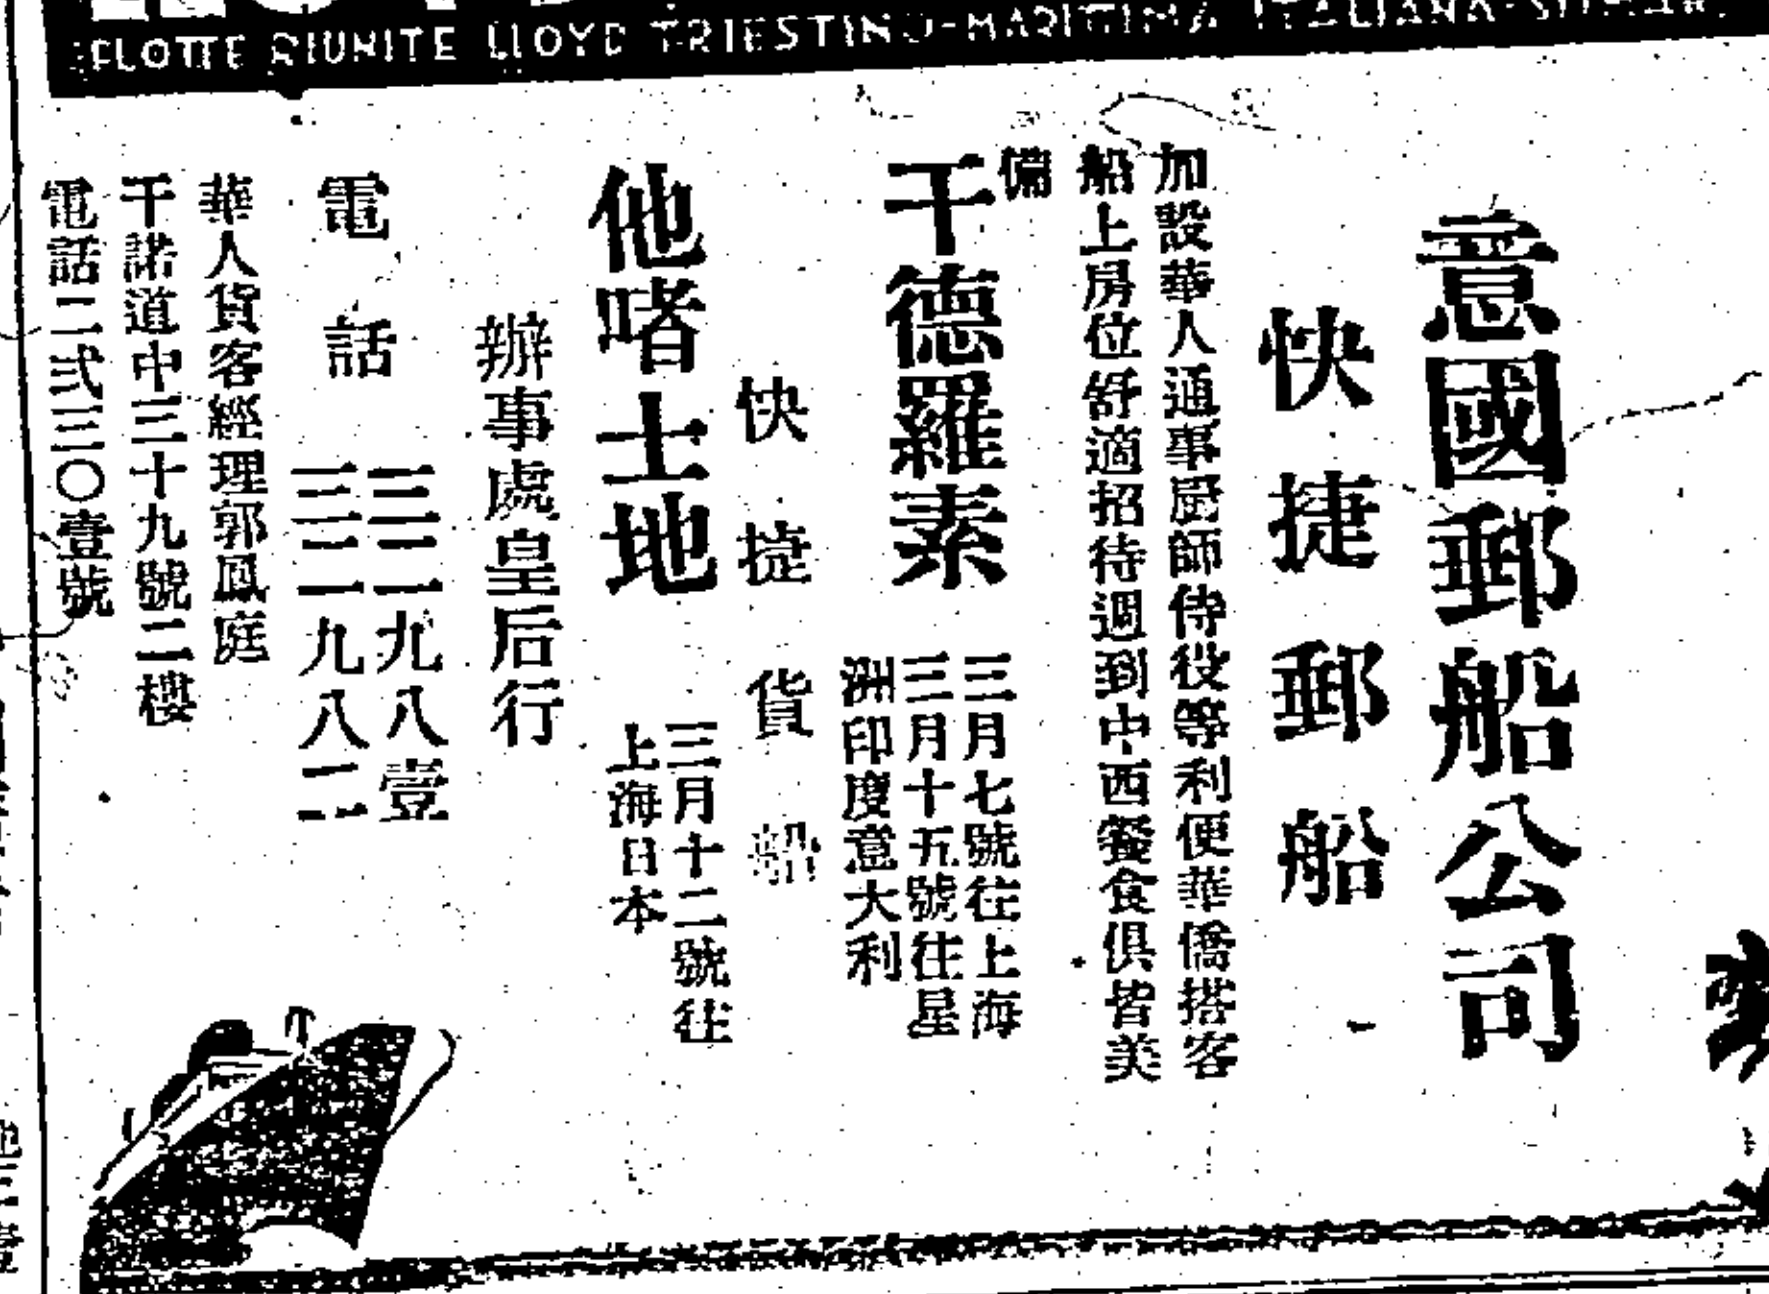 FLOTTE RIUNITE LLOYD TRIESTINO-MARITTIMA ITALIANA-SITMAR
意國郵船公司
快捷郵船
加設華人通事厨師侍役等利便華僑搭客
船上房位舒適招待週到中西餐食俱皆美
備
干德羅素
三月七號往上海
三月十五號往星
洲印度意大利
快捷貨船
他啫士地
三月十二號往
上海日本
辦事處皇后行
電話
三二一九八壹
三二一九八二
華人貨客經理郭鳳庭
干諾道中三十九號二樓
電話二弍三〇壹號